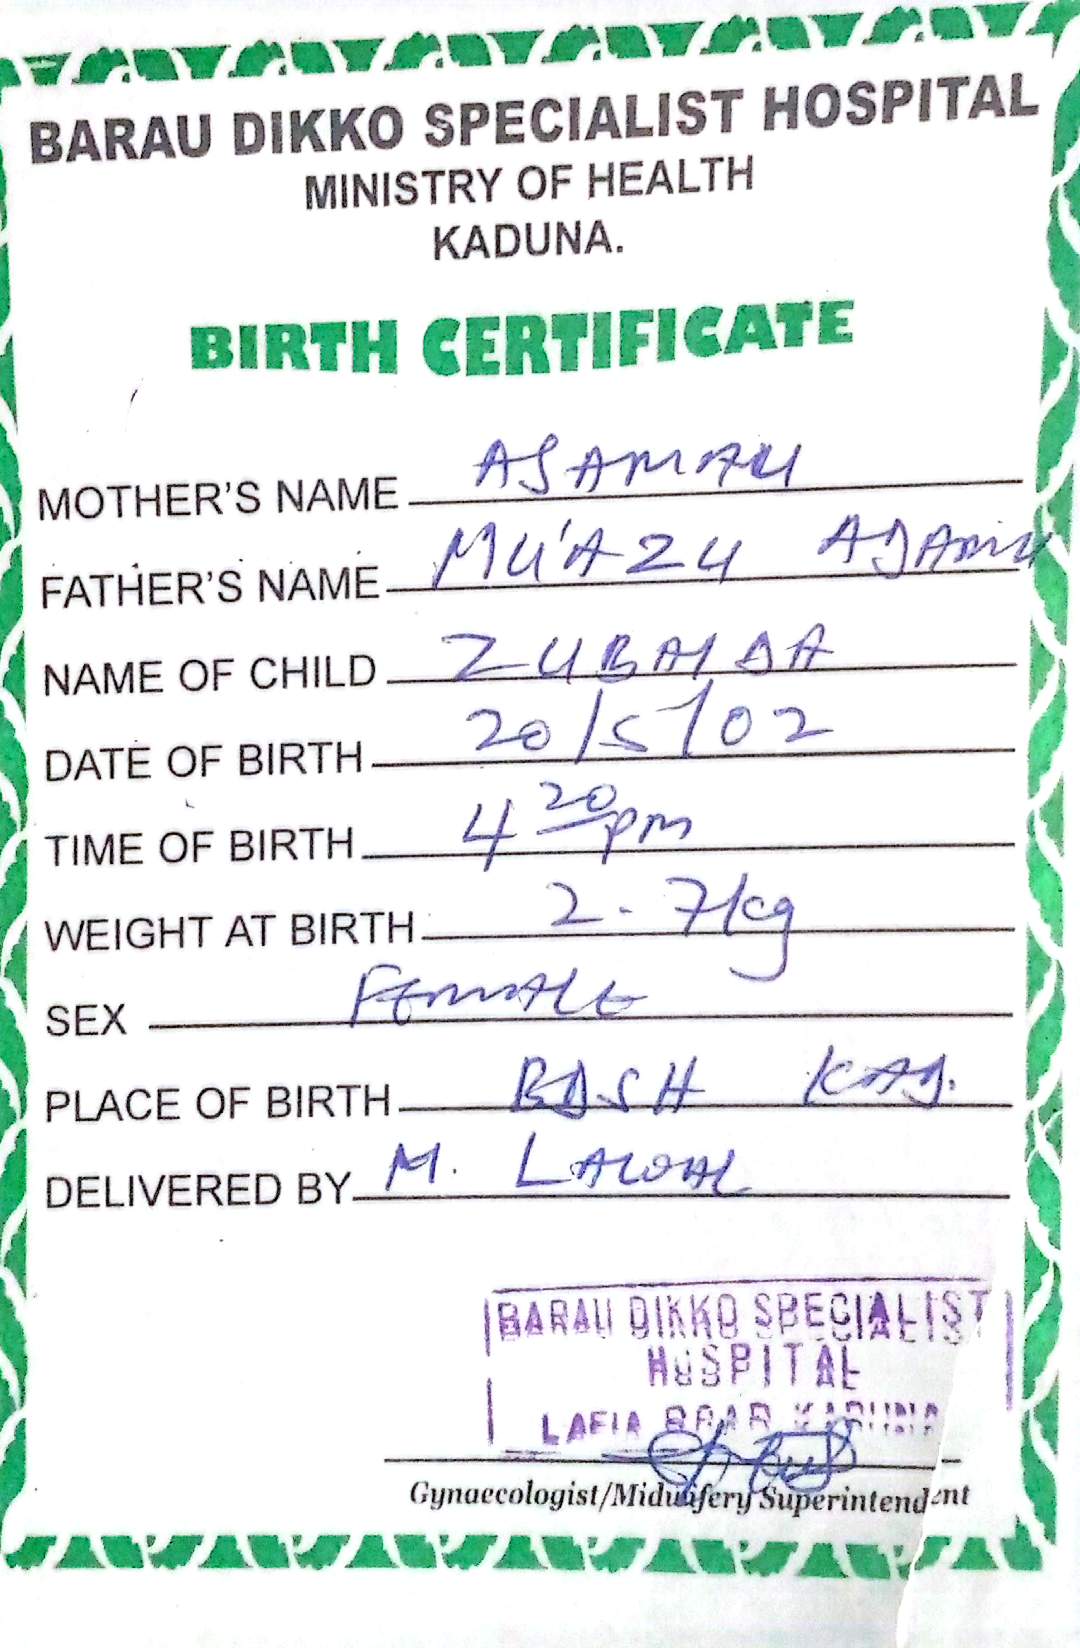 BARAU DIKKO SPECIALIST HOSPITAL
MINISTRY OF HEALTH
KADUNA.
BIRTH CERTIFICATE
MOTHER'S NAME
FATHER'S NAME MU'AZU ADAMU
NAME OF CHILD ZUBAIDA
DATE OF BIRTH 20/5/02
TIME OF BIRTH 4 20 pm
WEIGHT AT BIRTH 2.7kg
SEX FEMALE
PLACE OF BIRTH BDSH KAD.
DELIVERED BY M. LAWAL
BARAU DIKKO SPECIALIST
HOSPITAL
LAFIA ROAD KADUNA
Gynaecologist/Midwifery Superintendent